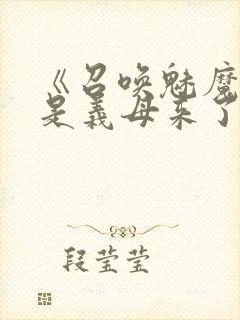 《召唤魅魔
是义母来了
段莹莹